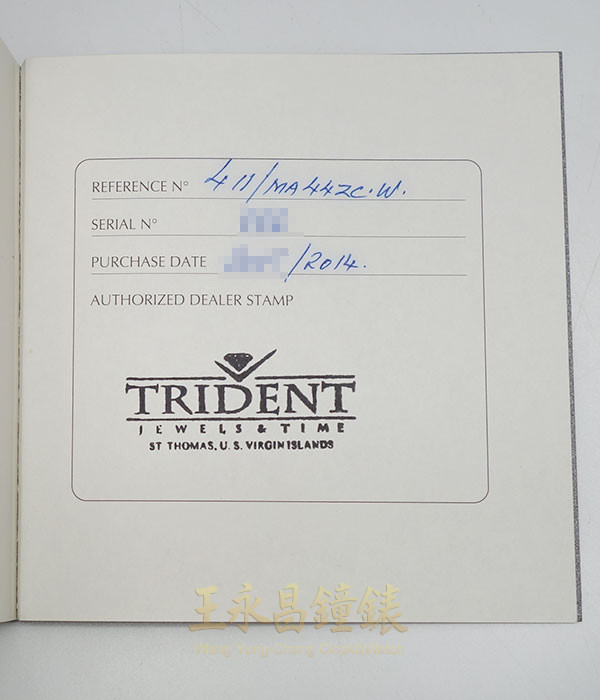 REFERENCE Nº 411/MA44ZC.W.
SERIAL Nº
PURCHASE DATE /2014.
AUTHORIZED DEALER STAMP
TRIDENT
JEWELS & TIME
ST THOMAS, U.S. VIRGIN ISLANDS
王永昌鐘錶